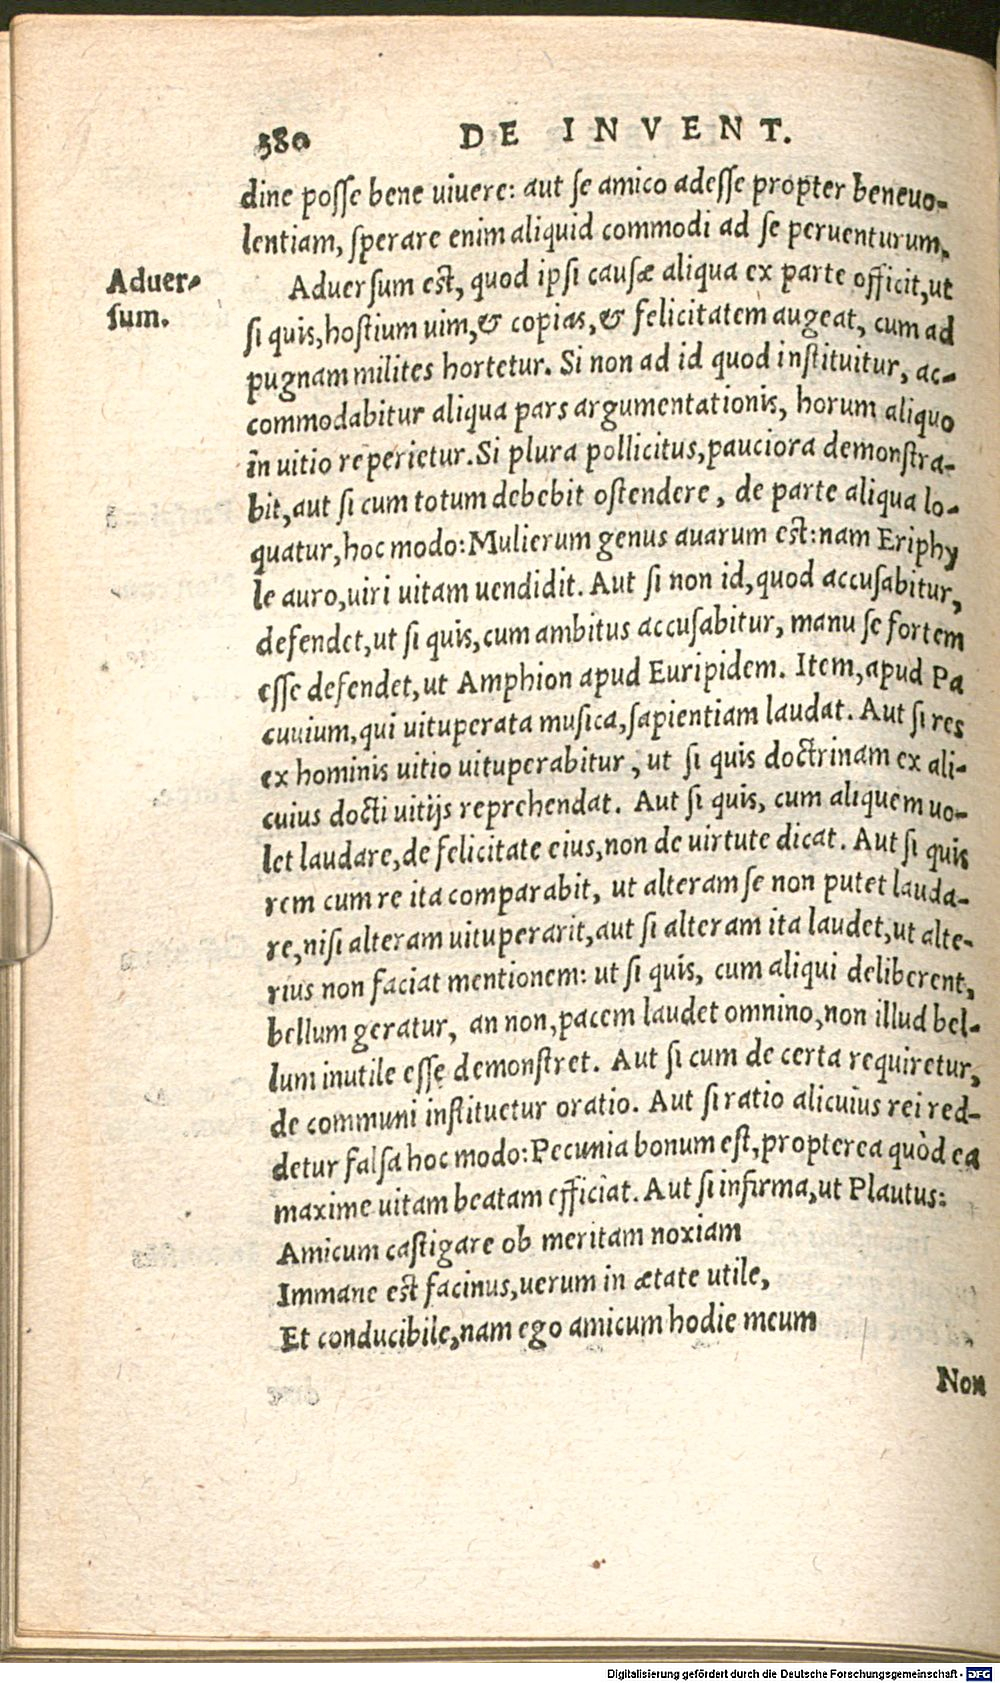 380 DE INVENT.
dine posse bene uiuere: aut se amico adesse propter beneuo-
lentiam, sperare enim aliquid commodi ad se peruenturum.
Aduer-
sum.
Aduersum est, quod ipsi causæ aliqua ex parte officit, ut
si quis, hostium uim, & copias, & felicitatem augeat, cum ad
pugnam milites hortetur. Si non ad id quod instituitur, ac-
commodabitur aliqua pars argumentationis, horum aliquo
in uitio reperietur. Si plura pollicitus, pauciora demonstra-
bit, aut si cum totum debebit ostendere, de parte aliqua lo-
quatur, hoc modo: Mulierum genus auarum est: nam Eriphy
le auro, uiri uitam uendidit. Aut si non id, quod accusabitur,
defendet, ut si quis, cum ambitus accusabitur, manu se fortem
esse defendet, ut Amphion apud Euripidem. Item, apud Pa
cuuium, qui uituperata musica, sapientiam laudat. Aut si res
ex hominis uitio uituperabitur, ut si quis doctrinam ex ali-
cuius docti uitijs reprehendat. Aut si quis, cum aliquem uo-
let laudare, de felicitate eius, non de uirtute dicat. Aut si quis
rem cum re ita comparabit, ut alteram se non putet lauda-
re, nisi alteram uituperarit, aut si alteram ita laudet, ut alte-
rius non faciat mentionem: ut si quis, cum aliqui deliberent,
bellum geratur, an non, pacem laudet omnino, non illud bel-
lum inutile esse demonstret. Aut si cum de certa requiretur,
de communi instituetur oratio. Aut si ratio alicuius rei red-
detur falsa hoc modo: Pecunia bonum est, propterea quòd ea
maxime uitam beatam efficiat. Aut si infirma, ut Plautus:
Amicum castigare ob meritam noxiam
Immane est facinus, uerum in ætate utile,
Et conducibile, nam ego amicum hodie meum
Non
Digitalisierung gefördert durch die Deutsche Forschungsgemeinschaft - DFG